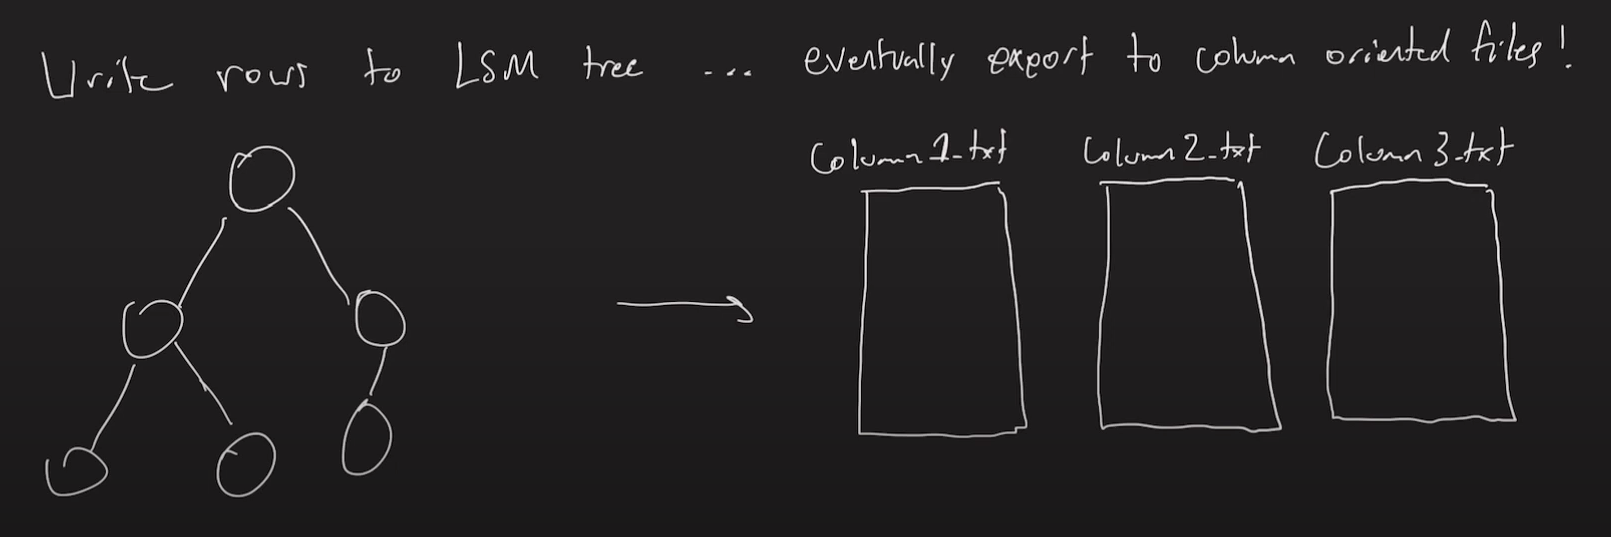 Write rows to LSM tree ... eventually export to column oriented files!
Column1.txt Column2.txt Column3.txt